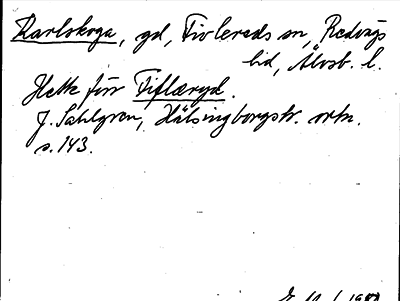 Karlskoga, gd, Tivlereds sn, Redvägs
bd, Älvsb. l.
Hette förr Tiflæryd.
J. Sahlgren, Hälsingborgstr. ortn.
s. 143.